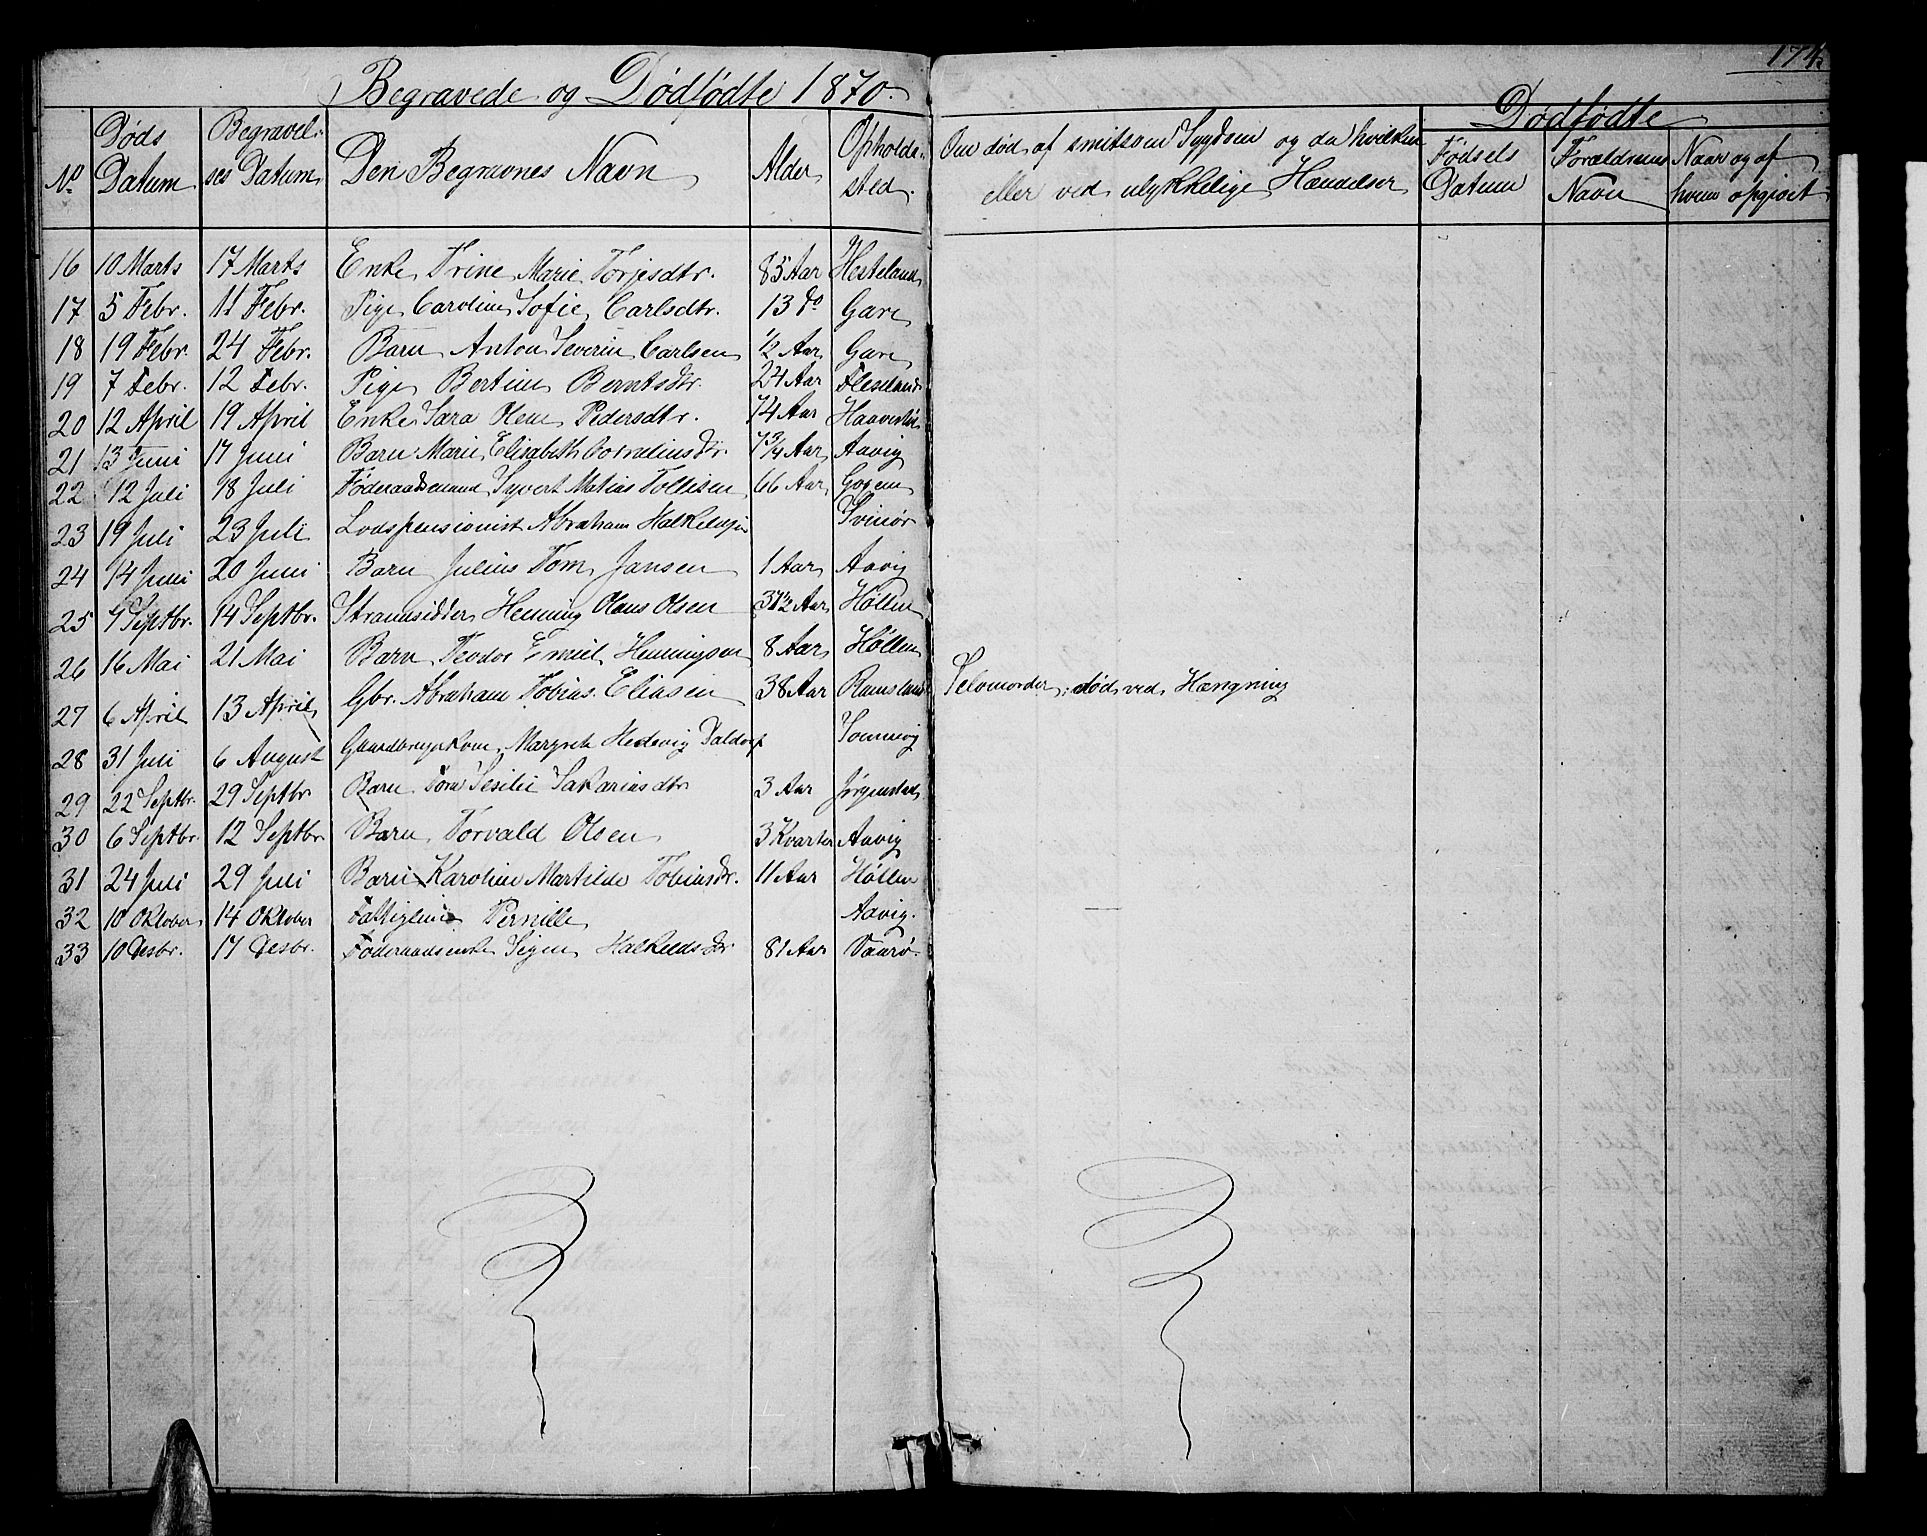 174
Begravede og Dødfødte 1870.
Dødfødte
No Døds Datum Begravelses Datum Den Begravnes Navn Alder Opholdssted. Om død af smitsom Sygdom og da hvilken eller ved ulykkelige Hændelser Fødsels Datum Forældrenes Navn Naar og af hvem opgivet
16 10 Marts 17 Marts Enke Trine Marie Torjesdtr. 85 Aar Hesteland
17 5 Febr. 11 Febr. Pige Caroline Sofie Carlsdtr. 13 do Gare
18 19 Febr. 24 Febr. Barn Anton Severin Carlsen ½ Aar Gare
19 7 Febr. 12 Febr. Pige Bertine Berntsdtr. 24 Aar
20 12 April 19 April Enke Sara Olene Pedersdtr. 74 Aar
21 13 Juni 17 Juni Barn Marie Elisabeth Corneliusdtr. 7¾ Aar Aavig
22 12 Juli 18 Juli Føderaadsmand Syvert Matias Tollisen 66 Aar
23 19 Juli 23 Juli Lodspensionist Abraham Svinør
24 14 Juni 20 Juni Barn Julius Tom Jansen 1 Aar Aavig
25 7 Septbr. 14 Septbr. Strandsidder Henning Olaus Olsen 37½ Aar Høllen
26 16 Mai 21 Mai Barn Teodor Emiel Henningsen 8 Aar Høllen
27 6 April 13 April Gbr. Abraham Tobias Eliasen 38 Aar Ramsland Selvmorder, død ved Hængning
28 31 Juli 6 August Gaardbrugerkone Margrete Hedevig Daldorf
29 22 Septbr. 29 Septbr. Barn Sesilie Sakariasdtr. 3 Aar Jørgenstad
30 6 Septbr. 12 Septbr. Barn Torvald Olsen 3 Kvarter Aavig
31 24 Juli 29 Juli Barn Karoline Martilde Tobiasdtr. 11 Aar Høllen
32 10 Oktober 14 Oktober Fattiglem Pernille Aavig.
33 10 Desbr. 17 Desbr. Føderaadsenke Sigen 81 Aar Vaarø.